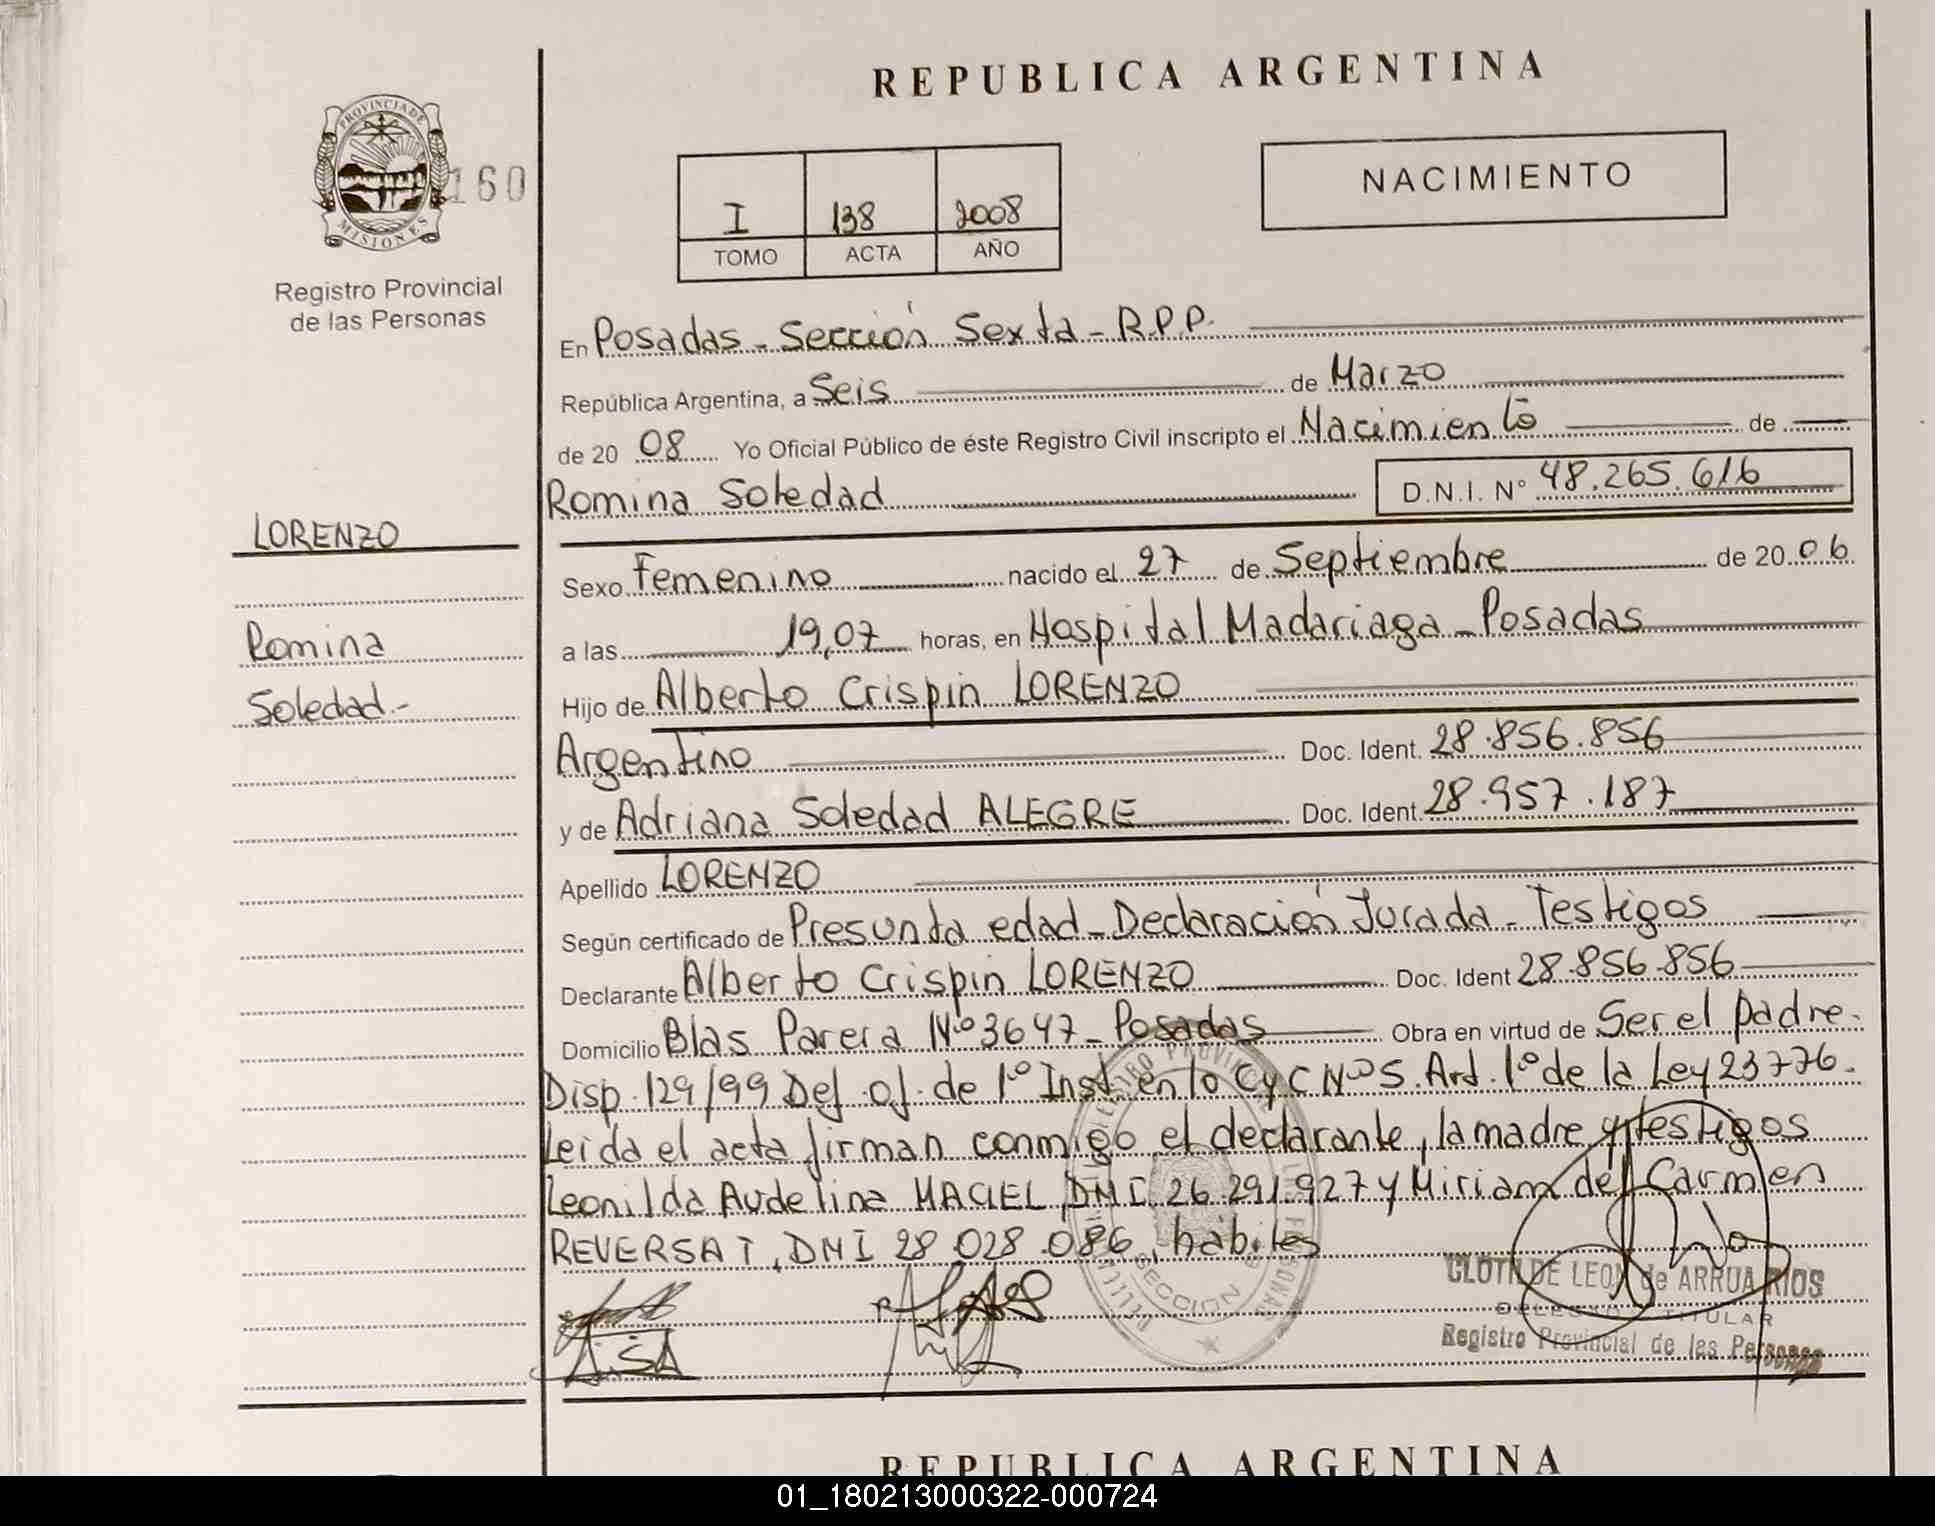 REPUBLICA ARGENTINA
PROVINCIA DE
MISIONES
160
Registro Provincial
de las Personas
I 138 2008
TOMO ACTA AÑO
NACIMIENTO
En Posadas - Sección Sexta - R.P.P.
República Argentina, a Seis de Marzo
de 20 08 Yo Oficial Público de éste Registro Civil inscripto el Nacimiento de
Romina Soledad D.N.I. N° 48.265.616
LORENZO
Romina
Soledad.-
Sexo Femenino nacido el 27 de Septiembre de 20 06
a las 19,07 horas, en Hospital Madariaga - Posadas
Hijo de Alberto Crispin LORENZO
Argentino Doc. Ident. 28.856.856
y de Adriana Soledad ALEGRE Doc. Ident. 28.957.187
Apellido LORENZO
Según certificado de Presunta edad - Declaración Jurada - Testigos
Declarante Alberto Crispin LORENZO Doc. Ident 28.856.856
Domicilio Blas Parera Nº 3647 - Posadas Obra en virtud de Ser el padre.
Disp. 129/99 Def. of. de 1º Inst. en lo C y C Nº 5. Art. 1º de la Ley 23776.
Leida el acta firman conmigo el declarante, la madre y testigos
Leonilda Audelina MACIEL DNI 26.291.927 y Miriam del Carmen
REVERSAT, DNI 28.028.086, hábiles
CLOTILDE LEON de ARRUA RIOS
DELEGADO TITULAR
Registro Provincial de las Personas
SECCION 6
REPUBLICA ARGENTINA
01_180213000322-000724